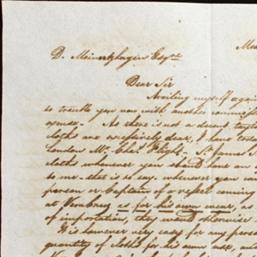 Me
D. Meinertzhagen Esqre
Dear Sir
Availing myself aga
to trouble you now with another commissi
agency - As there is not a decent tayl
cloths are excessively dear, I have
London Mr. John St. James S
cloths whenever you should have
to me - that is to say whenever you can
person or Captain of a vessel coming
at Veracruz is for his own wear, as
of importation, they would otherwise
It is however very easy for any perso
quantity of cloths for his own use, an